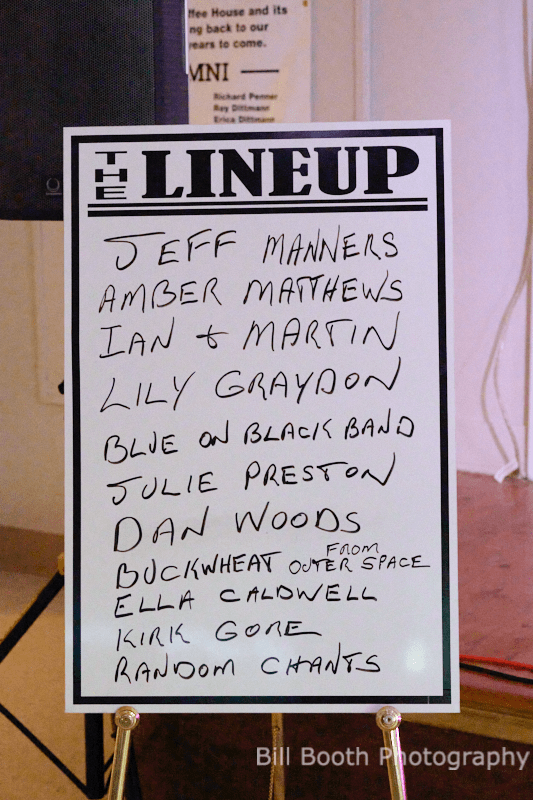 ffee House and its
ng back to our
years to come.
MNI
Richard Penner
Roy Dittmann
Erica Dittmann
THE LINEUP
JEFF MANNERS
AMBER MATTHEWS
IAN + MARTIN
LILY GRAYDON
BLUE ON BLACK BAND
JULIE PRESTON
DAN WOODS
BUCKWHEAT FROM OUTER SPACE
ELLA CALDWELL
KIRK GORE
RANDOM CHANTS
Bill Booth Photography